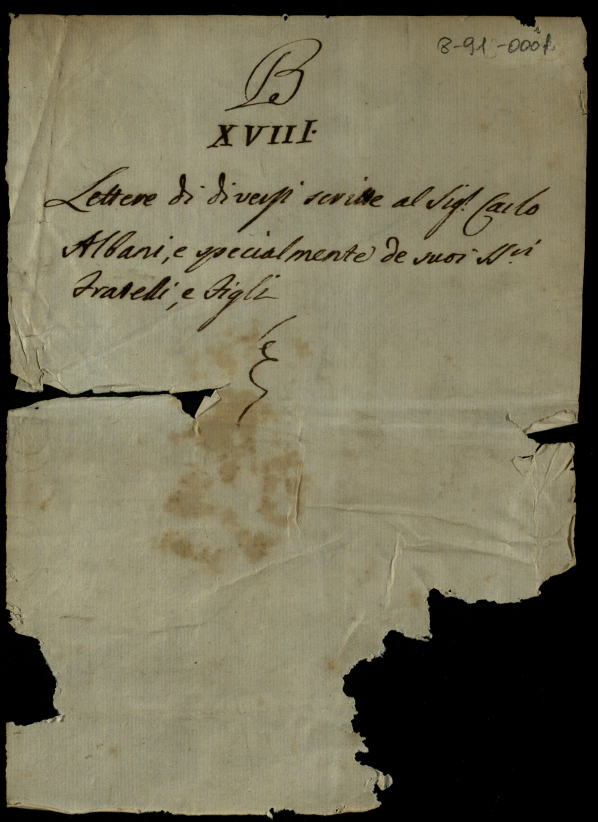 B-91-0001
B
XVIII.
Lettere di diversi scritte al Sig.r Carlo
Albani, e specialmente de suoi SS.ri
Fratelli, e Figli